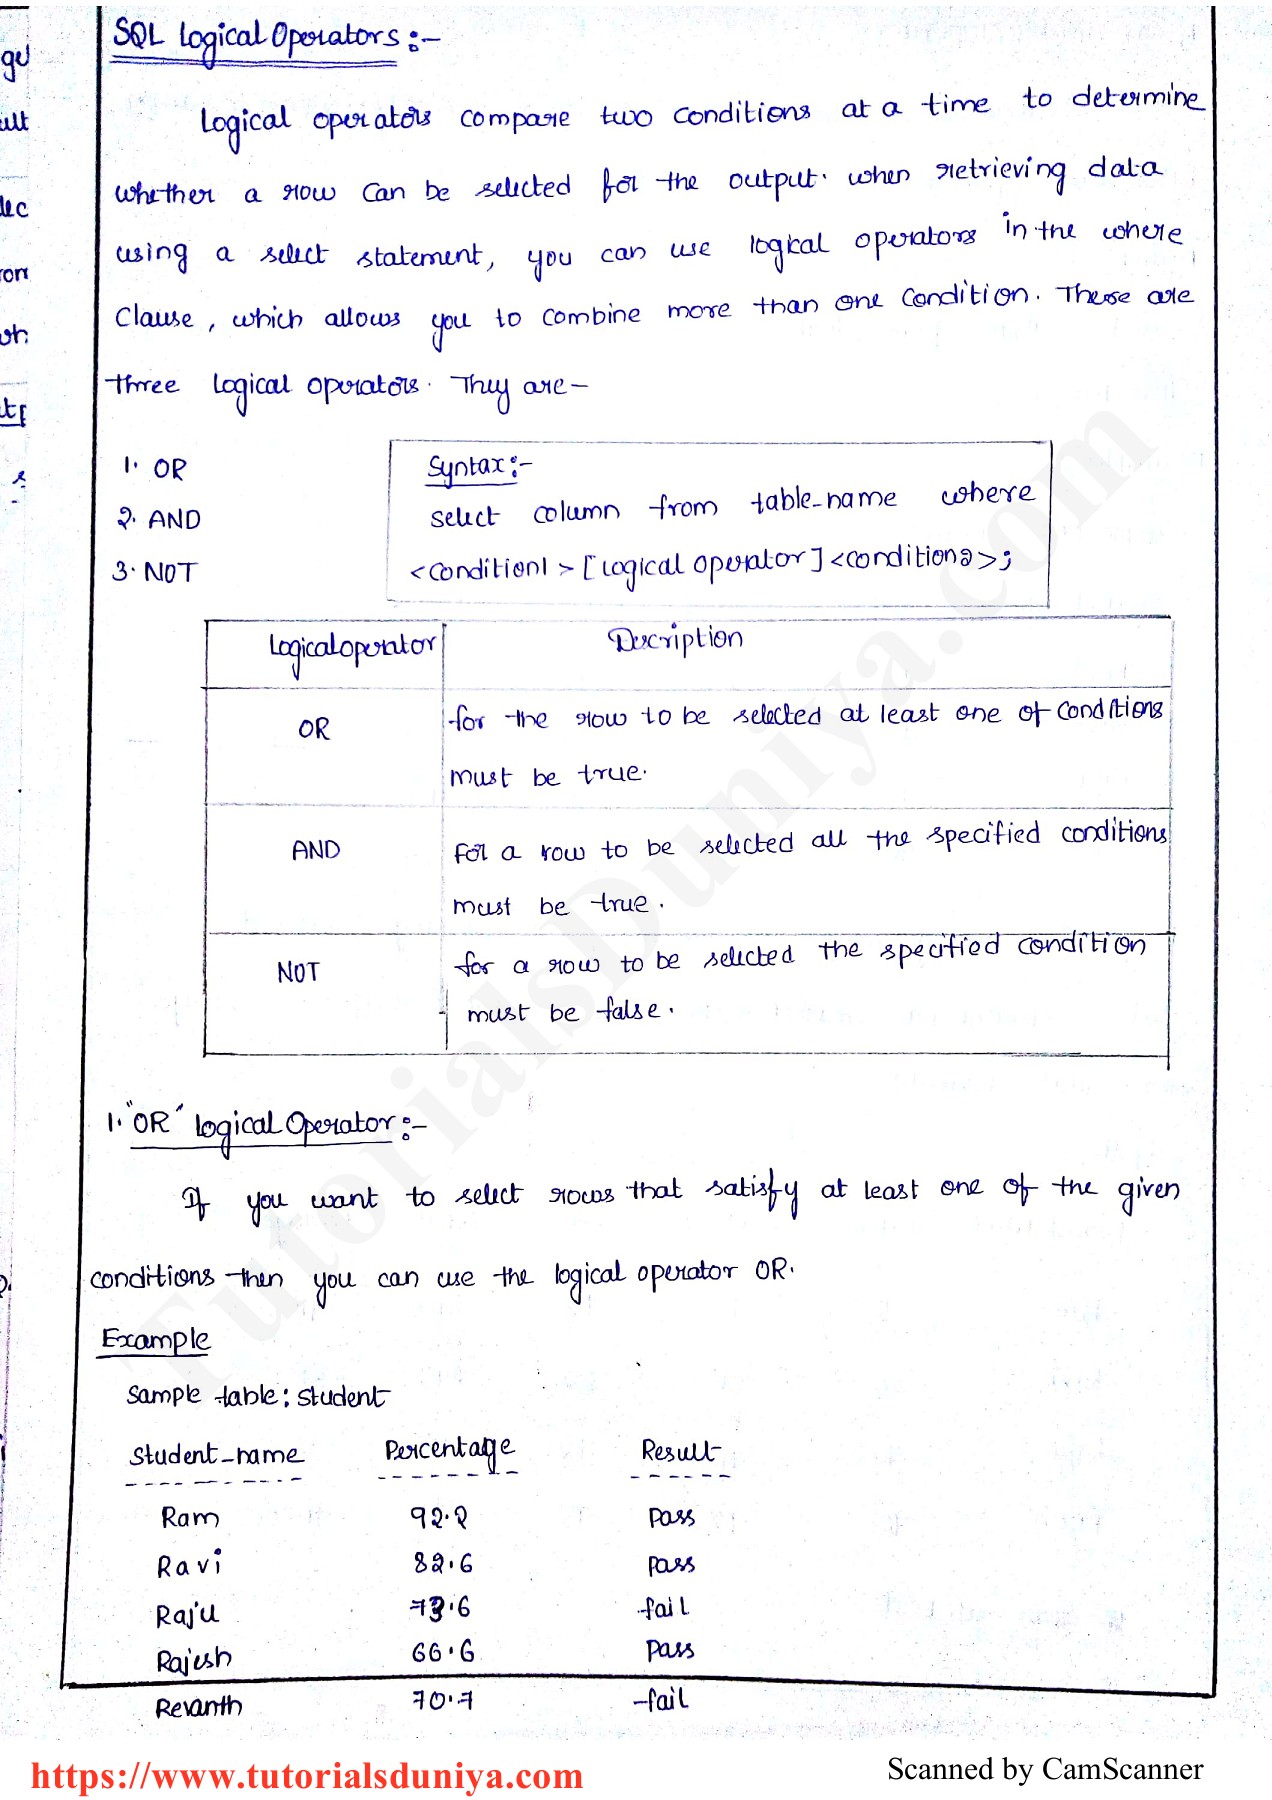 SQL Logical Operators :-
Logical operators compare two conditions at a time to determine
whether a row can be selected for the output. when retrieving data
using a select statement, you can use logical operators in the where
Clause, which allows you to combine more than one condition. These are
three logical operators. They are-
1. OR
2. AND
3. NOT
Syntax:-
select column from table_name where
<condition1> [Logical operator] <condition2>;
Logical operator Description
OR for the row to be selected at least one of conditions
must be true.
AND For a row to be selected all the specified conditions
must be true.
NOT for a row to be selected the specified condition
must be false.
1. "OR" logical Operator:-
If you want to select rows that satisfy at least one of the given
conditions then you can use the logical operator OR.
Example
Sample table: student
Student_name Percentage Result
Ram 92.2 pass
Ravi 82.6 pass
Raju 73.6 fail
Rajesh 66.6 pass
Revanth 70.7 fail
TutorialsDuniya.com
https://www.tutorialsduniya.com
Scanned by CamScanner